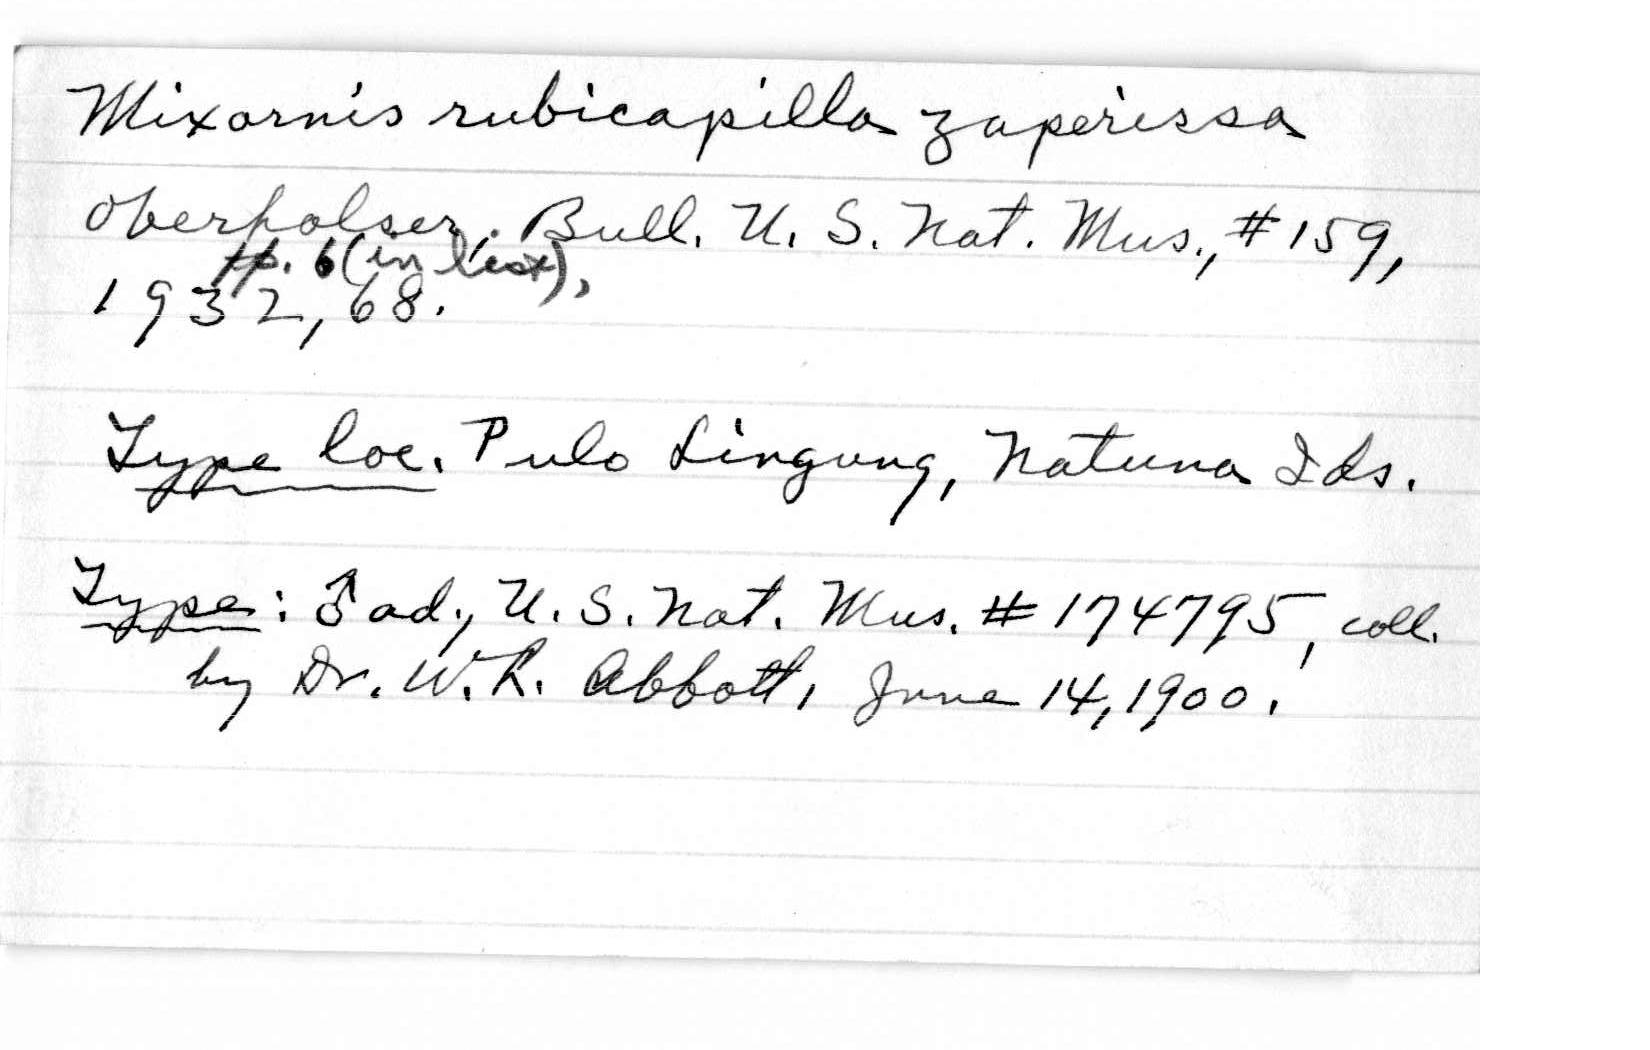 Mixornis rubicapilla zaperissa
Oberholser. Bull. U. S. Nat. Mus., #159,
pp. 6 (in list),
1932, 68.
Type loc. Pulo Lingung, Natuna Ids.
Type: ♂ ad., U. S. Nat. Mus. #174795, coll.
by Dr. W. L. Abbott, June 14, 1900.